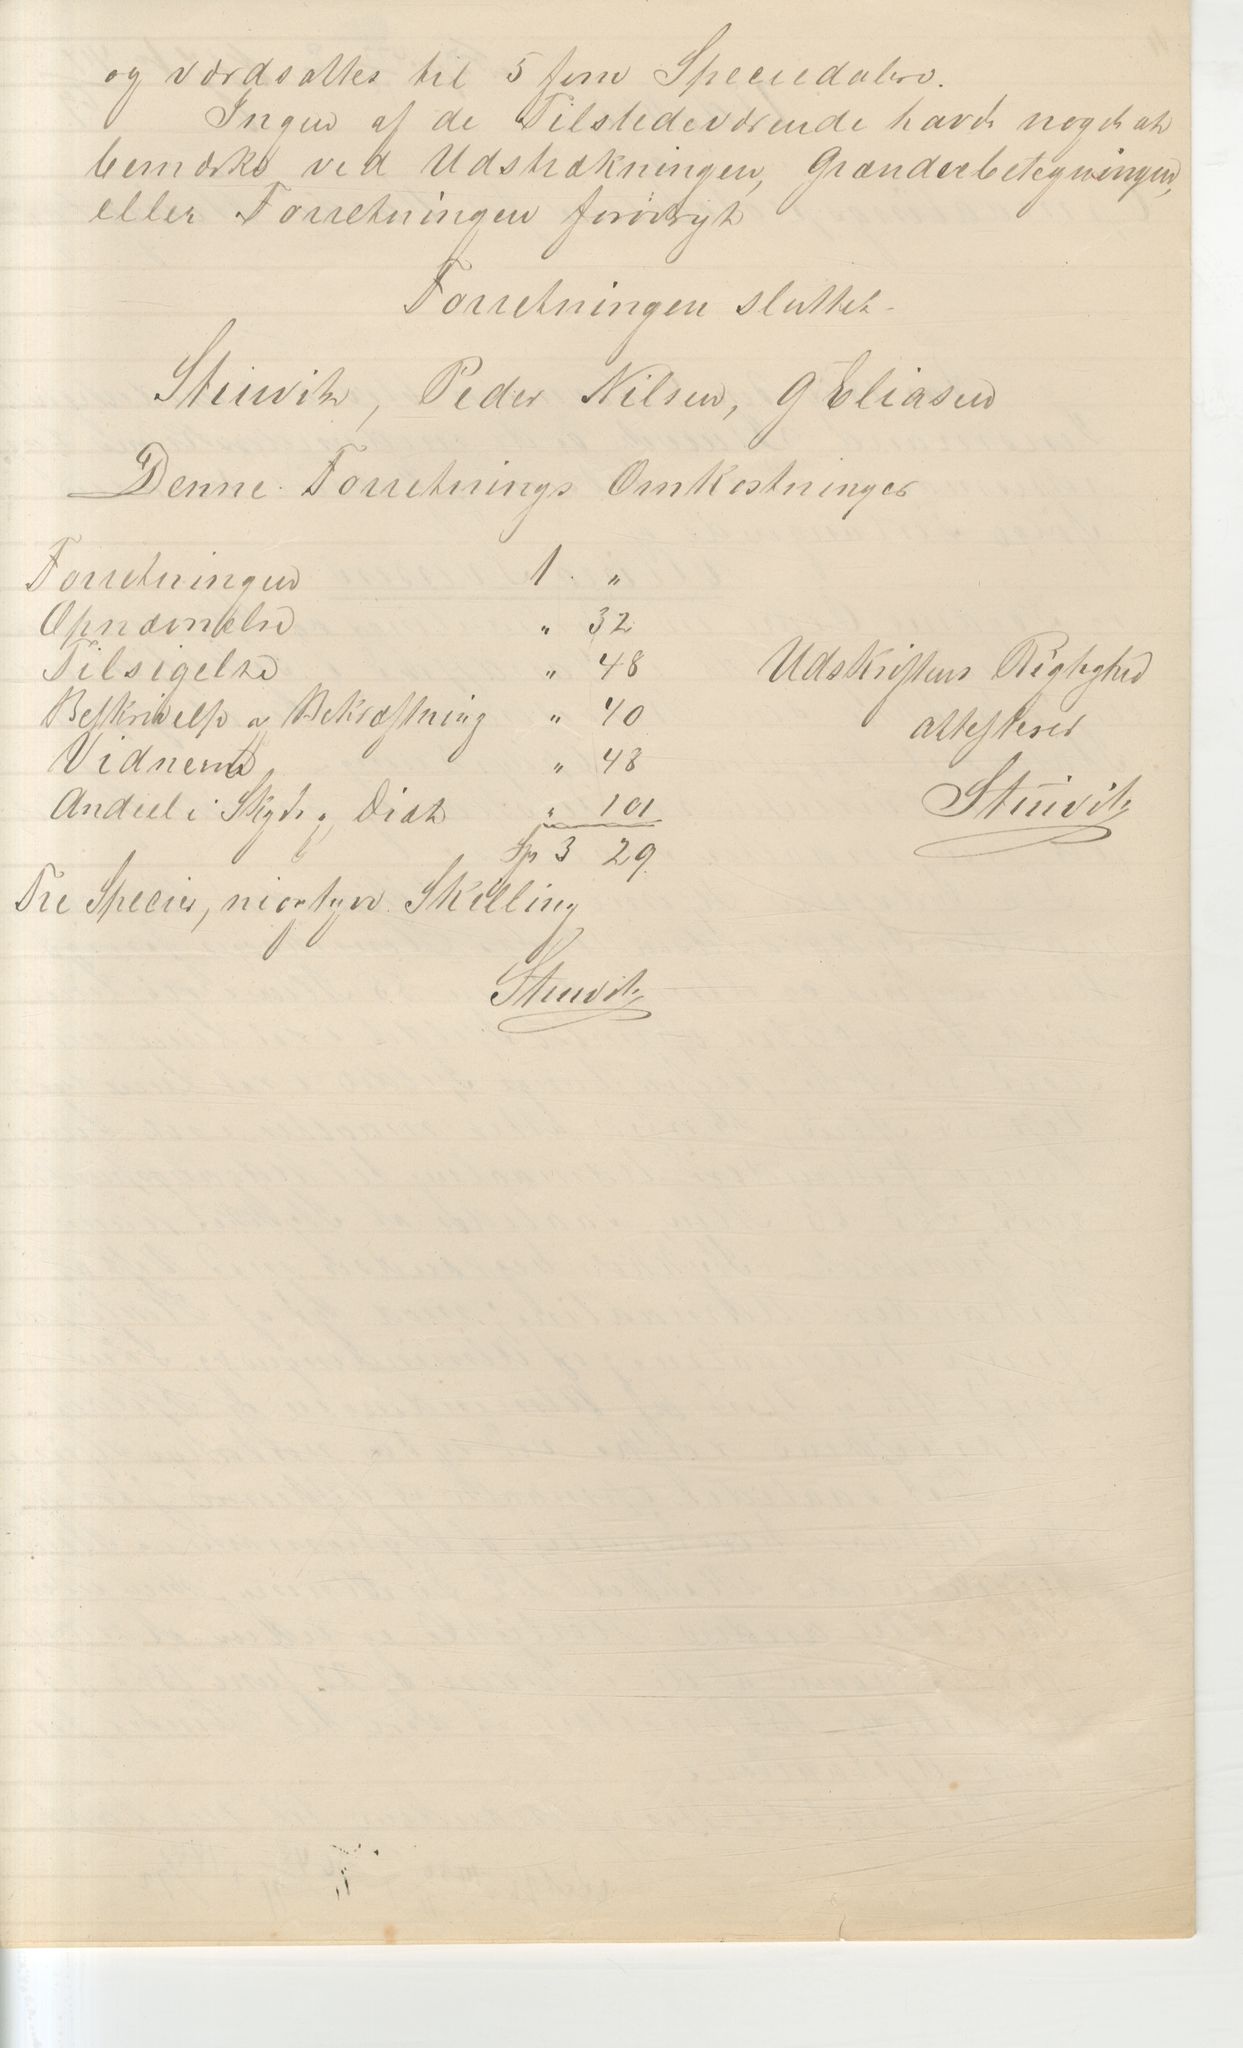 og værdsattes til 5 fem Speciedalere.
Ingen af de Tilstedeværende havde noget at
bemærke ved Udstrækningen, Grændsebetegningen,
eller Forretningen forøvrigt
Forretningen sluttet.
Stuwitz, Peder Nilsen, G Eliasen
Denne Forretnings Omkostninger
Forretningen 1 "
Opnævnelse " 32
Tilsigelse " 48
Beskrivelse og Bekræftning " 40
Vidnerne " 48
Andeel i Skyds og Diæt " 101
Sp 3 29
Udskriftens Rigtighed
attesterer
Stuwitz
Tre Species, niogtyve Skilling
Stuwitz